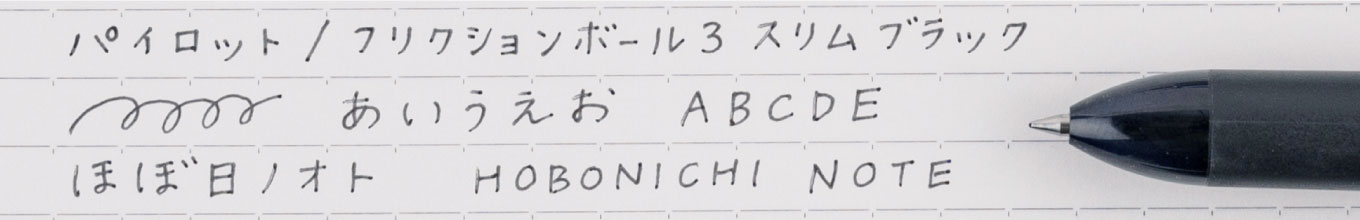 パイロット / フリクションボール3 スリム ブラック
あいうえお ABCDE
ほぼ日ノオト HOBONICHI NOTE